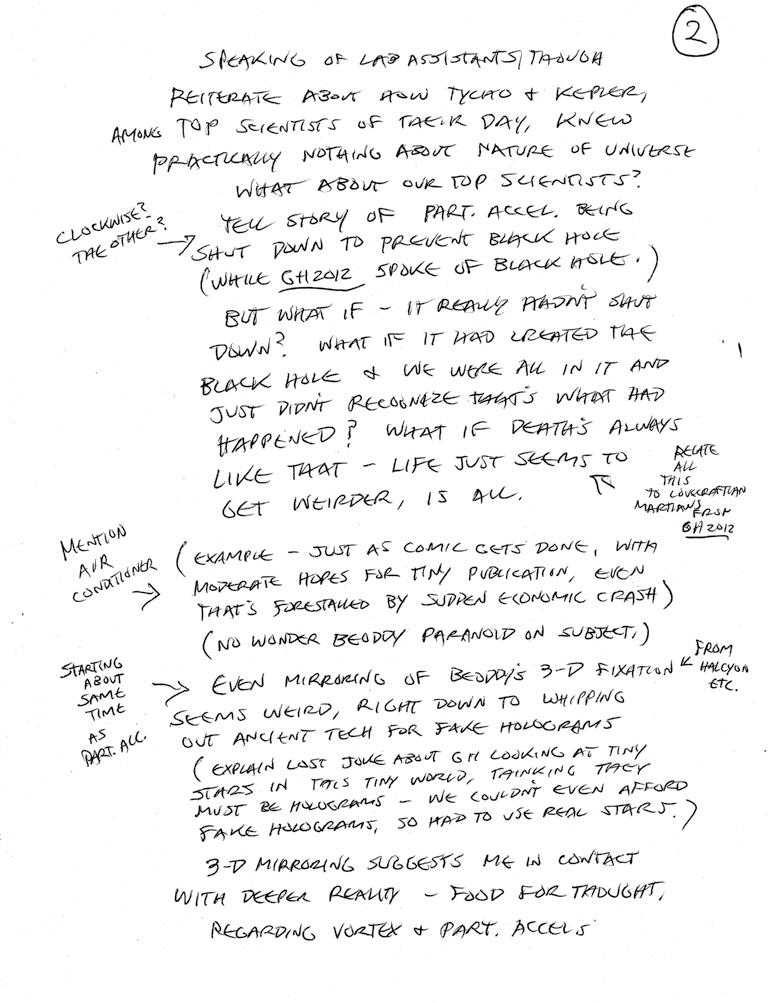 2
SPEAKING OF LAB ASSISTANTS, THOUGH
REITERATE ABOUT HOW TYCHO & KEPLER,
AMONG TOP SCIENTISTS OF THEIR DAY, KNEW
PRACTICALLY NOTHING ABOUT NATURE OF UNIVERSE
WHAT ABOUT OUR TOP SCIENTISTS?
CLOCKWISE?
THE OTHER?
TELL STORY OF PART. ACCEL. BEING
SHUT DOWN TO PREVENT BLACK HOLE
(WHILE GH2012 SPOKE OF BLACK HOLE.)
BUT WHAT IF – IT REALLY HADN'T SHUT
DOWN? WHAT IF IT HAD CREATED THE
BLACK HOLE & WE WERE ALL IN IT AND
JUST DIDN'T RECOGNIZE THAT'S WHAT HAD
HAPPENED? WHAT IF DEATH'S ALWAYS
LIKE THAT – LIFE JUST SEEMS TO
GET WEIRDER, IS ALL.
RELATE
ALL
THIS
TO LOVECRAFTIAN
MARTIANS FROM
GH2012
MENTION
AIR
CONDITIONER
(EXAMPLE – JUST AS COMIC GETS DONE, WITH
MODERATE HOPES FOR TINY PUBLICATION, EVEN
THAT'S FORESTALLED BY SUDDEN ECONOMIC CRASH)
(NO WONDER BEODDY PARANOID ON SUBJECT.)
STARTING
ABOUT
SAME
TIME
AS
PART. ACC.
EVEN MIRRORING OF BEODDY'S 3-D FIXATION
FROM
HALCYON
ETC.
SEEMS WEIRD, RIGHT DOWN TO WHIPPING
OUT ANCIENT TECH FOR FAKE HOLOGRAMS
(EXPLAIN LOST JOKE ABOUT GH LOOKING AT TINY
STARS IN THIS TINY WORLD, THINKING THEY
MUST BE HOLOGRAMS – WE COULDN'T EVEN AFFORD
FAKE HOLOGRAMS, SO HAD TO USE REAL STARS.)
3-D MIRRORING SUGGESTS ME IN CONTACT
WITH DEEPER REALITY – FOOD FOR THOUGHT,
REGARDING VORTEX & PART. ACCELS